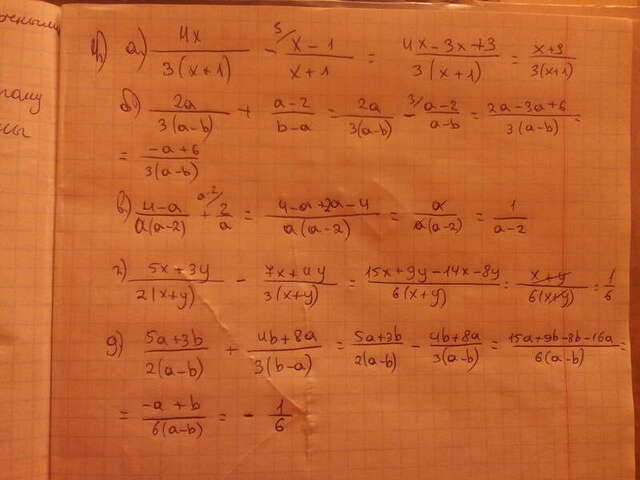 еным
4) а) 4x/3(x+1) - 3/ x-1/x+1 = 4x-3x+3/3(x+1) = x+3/3(x+1)
б) 2a/3(a-b) + a-2/b-a = 2a/3(a-b) - 3/ a-2/a-b = 2a-3a+6/3(a-b) =
= -a+6/3(a-b)
в) 4-a/a(a-2) + a-2/ 2/a = 4-a+2a-4/a(a-2) = a/a(a-2) = 1/a-2
г) 5x+3y/2(x+y) - 7x+4y/3(x+y) = 15x+9y-14x-8y/6(x+y) = x+y/6(x+y) = 1/6
д) 5a+3b/2(a-b) + 4b+8a/3(b-a) = 5a+3b/2(a-b) - 4b+8a/3(a-b) = 15a+9b-8b-16a/6(a-b) =
= -a+b/6(a-b) = - 1/6